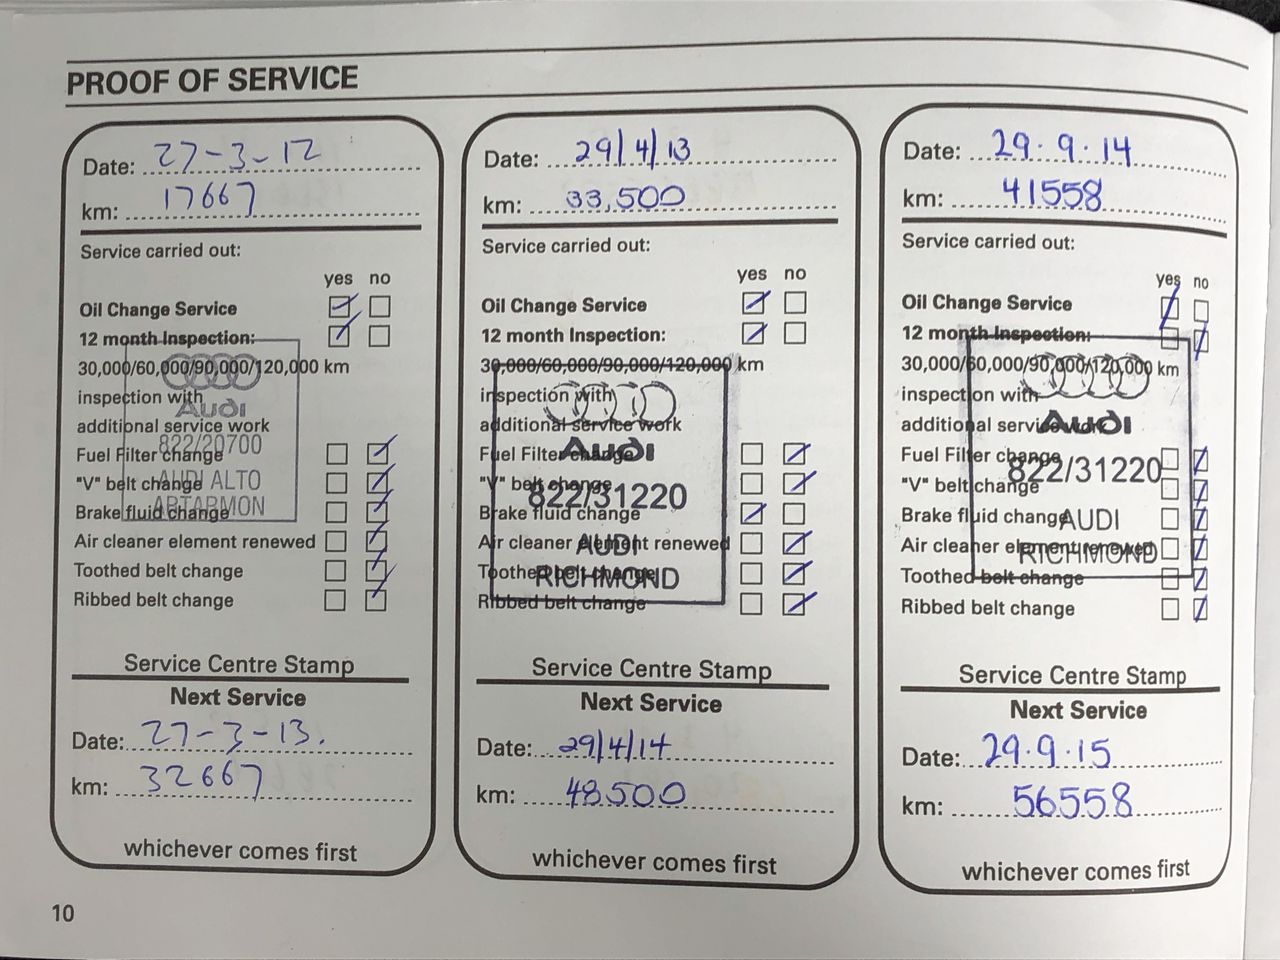 PROOF OF SERVICE
Date: 27-3-12
km: 17667
Service carried out:
yes no
Oil Change Service
12 month Inspection:
30,000/60,000/90,000/120,000 km
inspection with
additional service work
Fuel Filter change
"V" belt change
Brake fluid change
Air cleaner element renewed
Toothed belt change
Ribbed belt change
Audi
822/20700
AUDI ALTO
ARTARMON
Service Centre Stamp
Next Service
Date: 27-3-13.
km: 32667
whichever comes first
Date: 29/4/13
km: 33,500
Service carried out:
yes no
Oil Change Service
12 month Inspection:
30,000/60,000/90,000/120,000 km
inspection with
additional service work
Fuel Filter change
"V" belt change
Brake fluid change
Air cleaner element renewed
Toothed belt change
Ribbed belt change
Audi
822/31220
AUDI
RICHMOND
Service Centre Stamp
Next Service
Date: 29/4/14
km: 48500
whichever comes first
Date: 29.9.14
km: 41558
Service carried out:
yes no
Oil Change Service
12 month Inspection:
30,000/60,000/90,000/120,000 km
inspection with
additional service work
Fuel Filter change
"V" belt change
Brake fluid change
Air cleaner element renewed
Toothed belt change
Ribbed belt change
Audi
822/31220
AUDI
RICHMOND
Service Centre Stamp
Next Service
Date: 29.9.15
km: 56558
whichever comes first
10